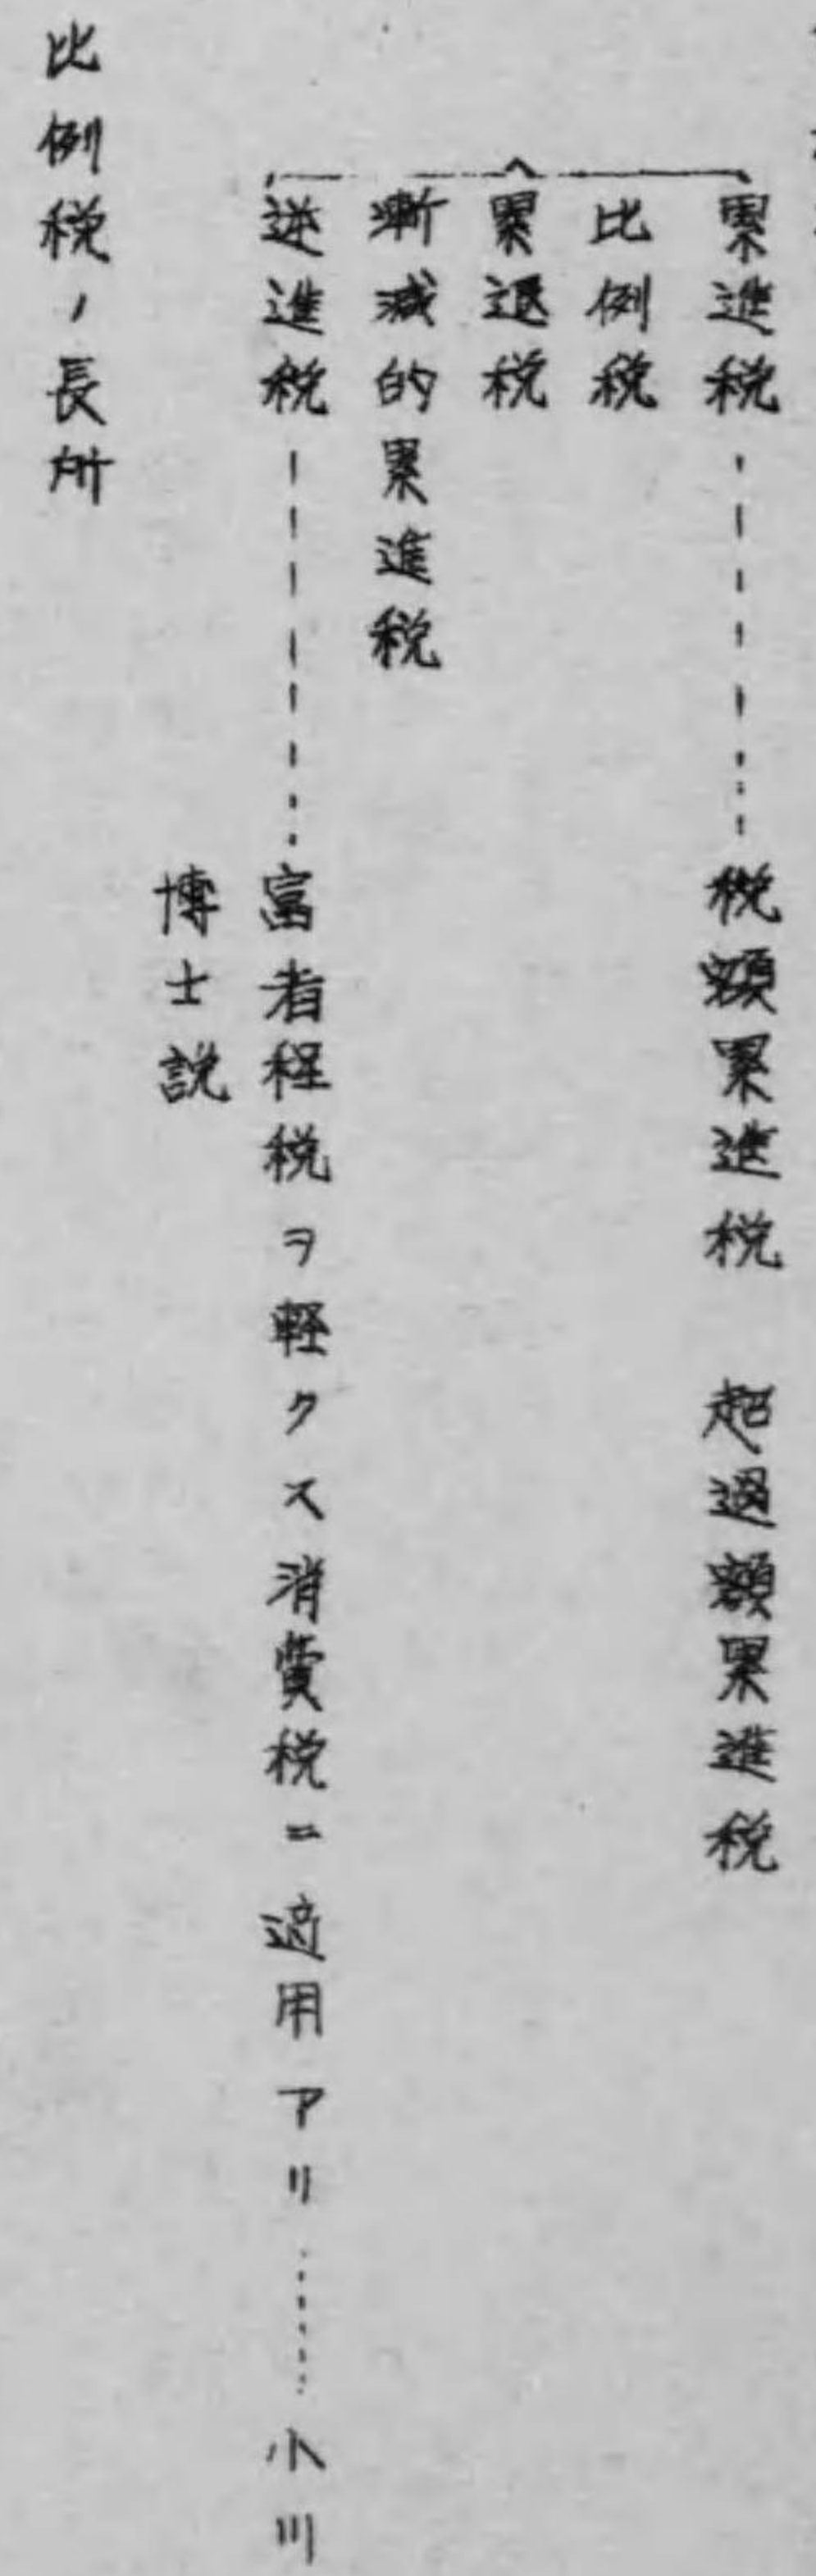 累進税………税額累進税　超過額累進税
比例税
累退税
漸減的累進税
逆進税………富者程税ヲ軽クス消費税ニ適用アリ……小川
博士説
比例税ノ長所